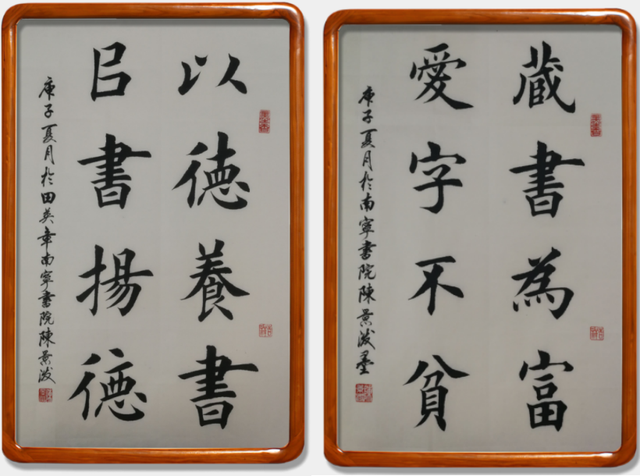 以德養書
㠯書揚德
庚子夏月於田英章南寧書院陳景浚
藏書為富
愛字不貧
庚子夏月於南寧書院陳景浚墨